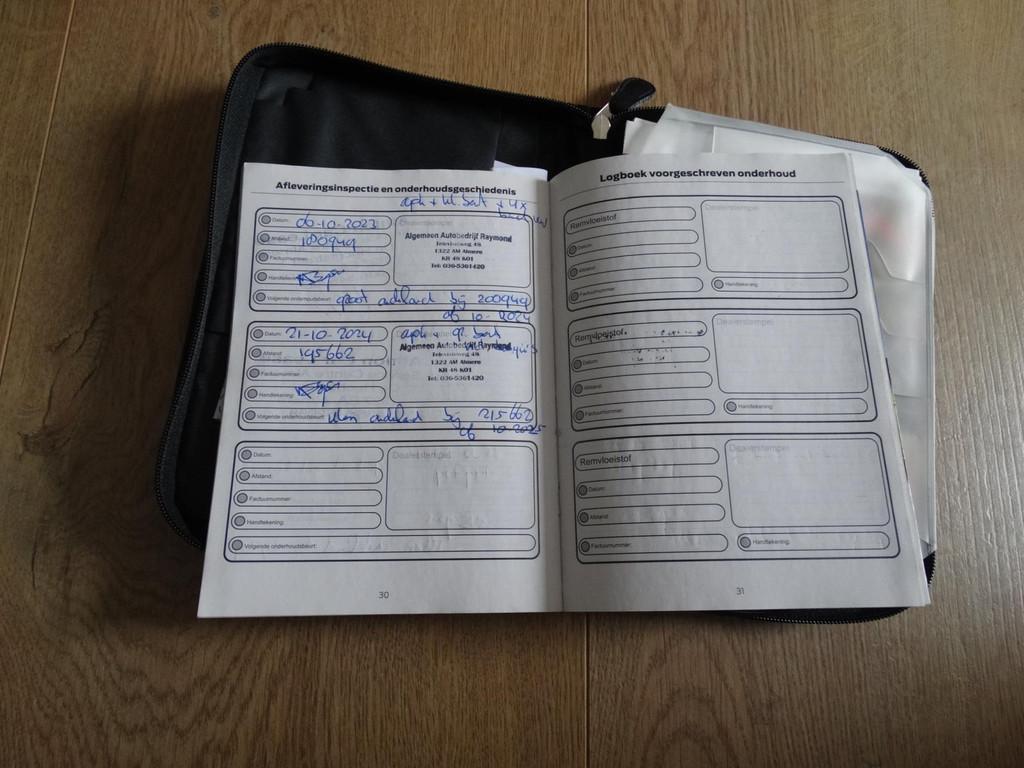 Afleveringsinspectie en onderhoudsgeschiedenis
apk + kl. beurt + 4x
Datum: 06-10-2023
Dealerstempel
Afstand: 180949
Algemeen Autobedrijf Raymond
1322 AM Almere
KR 48 K01
Tel: 036-5361420
Factuurnummer:
Handtekening:
Volgende onderhoudsbeurt: groot onderhoud bij 200949
of 10-2024
Datum: 21-10-2024
apk + gr. beurt
Afstand: 195662
Algemeen Autobedrijf Raymond
1322 AM Almere
KR 48 K01
Tel: 036-5361420
Factuurnummer:
Handtekening:
Volgende onderhoudsbeurt: klein onderhoud bij 215662
of 10-2025
Datum:
Dealerstempel
Afstand:
Factuurnummer:
Handtekening:
Volgende onderhoudsbeurt:
30
Logboek voorgeschreven onderhoud
Remvloeistof
Dealerstempel
Datum:
Afstand:
Factuurnummer:
Handtekening:
Remvloeistof
Dealerstempel
Datum:
Afstand:
Factuurnummer:
Handtekening:
Remvloeistof
Dealerstempel
Datum:
Afstand:
Factuurnummer:
Handtekening:
31